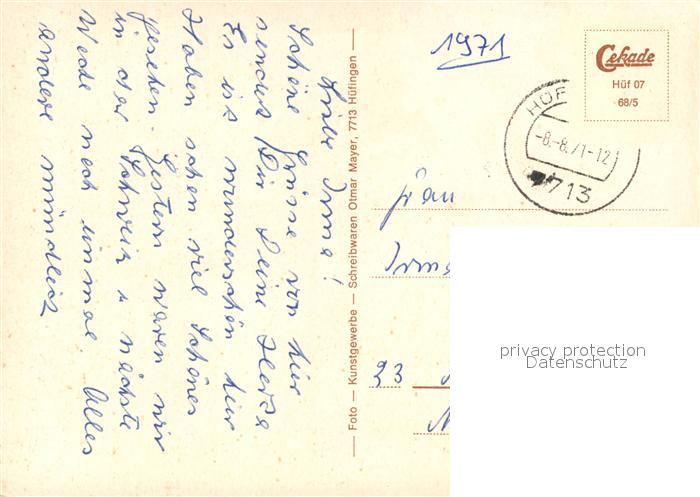 Liebe Irma!
Schöne Grüsse von hier
sendet Dir Deine
Es ist wunderschön hier
Haben schon viel Schönes
gesehen. Gestern waren wir
in der Schweiz u nächste
Woche noch einmal. Alles
andere mündlich
Foto — Kunstgewerbe — Schreibwaren Otmar Mayer, 7713 Hüfingen
1971
Cekade
Hüf 07
68/5
HÜF
-8.-8.71-12
7713
Frau
Irma
23
privacy protection
Datenschutz